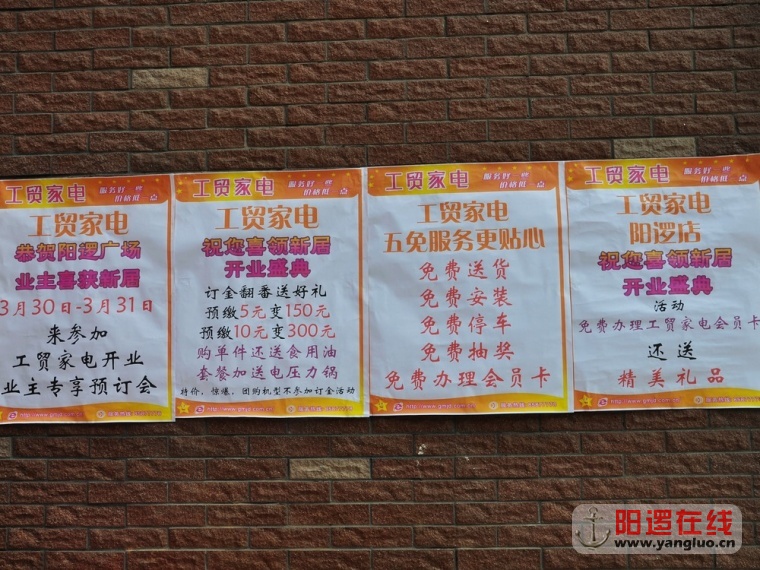 工贸家电
服务好一些
价格低一点
工贸家电
恭贺阳逻广场
业主喜获新居
3月30日-3月31日
来参加
工贸家电开业
业主专享预订会
工贸家电
服务好一些
价格低一点
工贸家电
祝您喜领新居
开业盛典
订金翻番送好礼
预缴5元变150元
预缴10元变300元
购单件还送食用油
套餐加送电压力锅
特价，惊爆，团购机型不参加订金活动
工贸家电
服务好一些
价格低一点
工贸家电
五免服务更贴心
免费送货
免费安装
免费停车
免费抽奖
免费办理会员卡
工贸家电
服务好一些
价格低一点
工贸家电
阳逻店
祝您喜领新居
开业盛典
活动
免费办理工贸家电会员卡
还送
精美礼品
阳逻在线
www.yangluo.cn